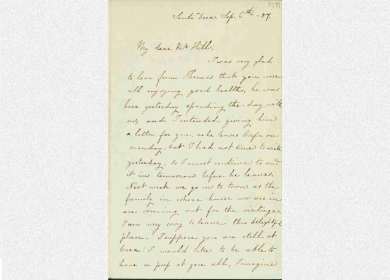 Santa Rosa, Sep. 6th - 87.
My dear Mr Hill,
I was very glad
to hear from Thomas that you were
all enjoying good health, he was
here yesterday spending the day with
us, and I intended giving him
a letter for you, as he leaves
on
monday, but I had not time to write
yesterday, so I must continue to
it in tomorrow before he leaves.
Next week we go in to town as the
family in whose house we are in
are coming out for the vintage.
I am very sorry to leave this delightful
place. I suppose you are still at
I would like to be able to
have a peep at you all, I imagine